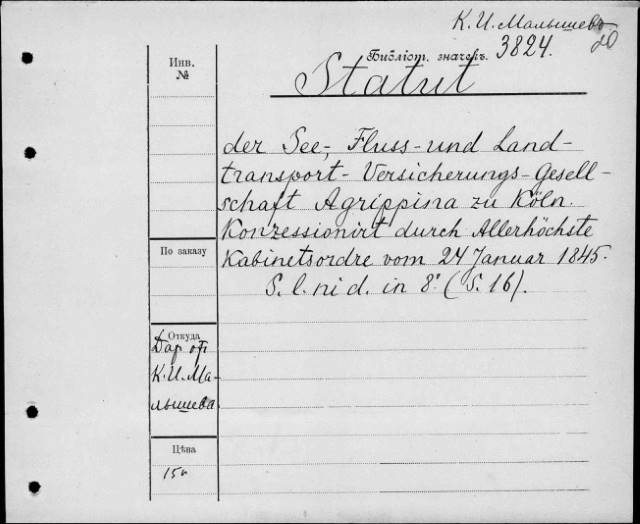 К. И. Малышевъ
20
Библіот. значекъ. 3824.
Инв.
№
Statut
der See-, Fluss- und Land-
transport- Versicherungs-Gesell-
schaft Agrippina zu Köln.
Konzessionirt durch Allerhöchste
Kabinetsordre vom 24 Januar 1845.
По заказу
S. l. ni d. in 8º. (S. 16).
Откуда
Даръ отъ
К. И. Ма-
лышева
Цѣна